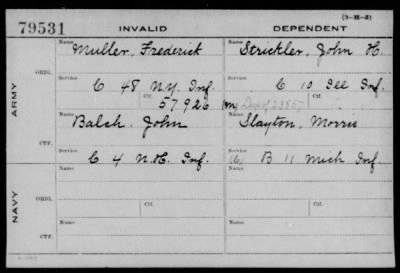 (3-H-3)
79531 INVALID DEPENDENT
Name Muller, Frederick Name Strickler, John H.
ORIG.
Service Service
C 48 N.Y. Inf. C 10 Ill Inf.
Ctf. 57926 Ctf.
ARMY
Name Balch, John Name Slayton, Morris
CTF.
Service Service
C 4 N.H. Inf. B 11 Mich Inf.
Name Ctf. Name Ctf.
ORIG.
NAVY
Name Name
CTF.